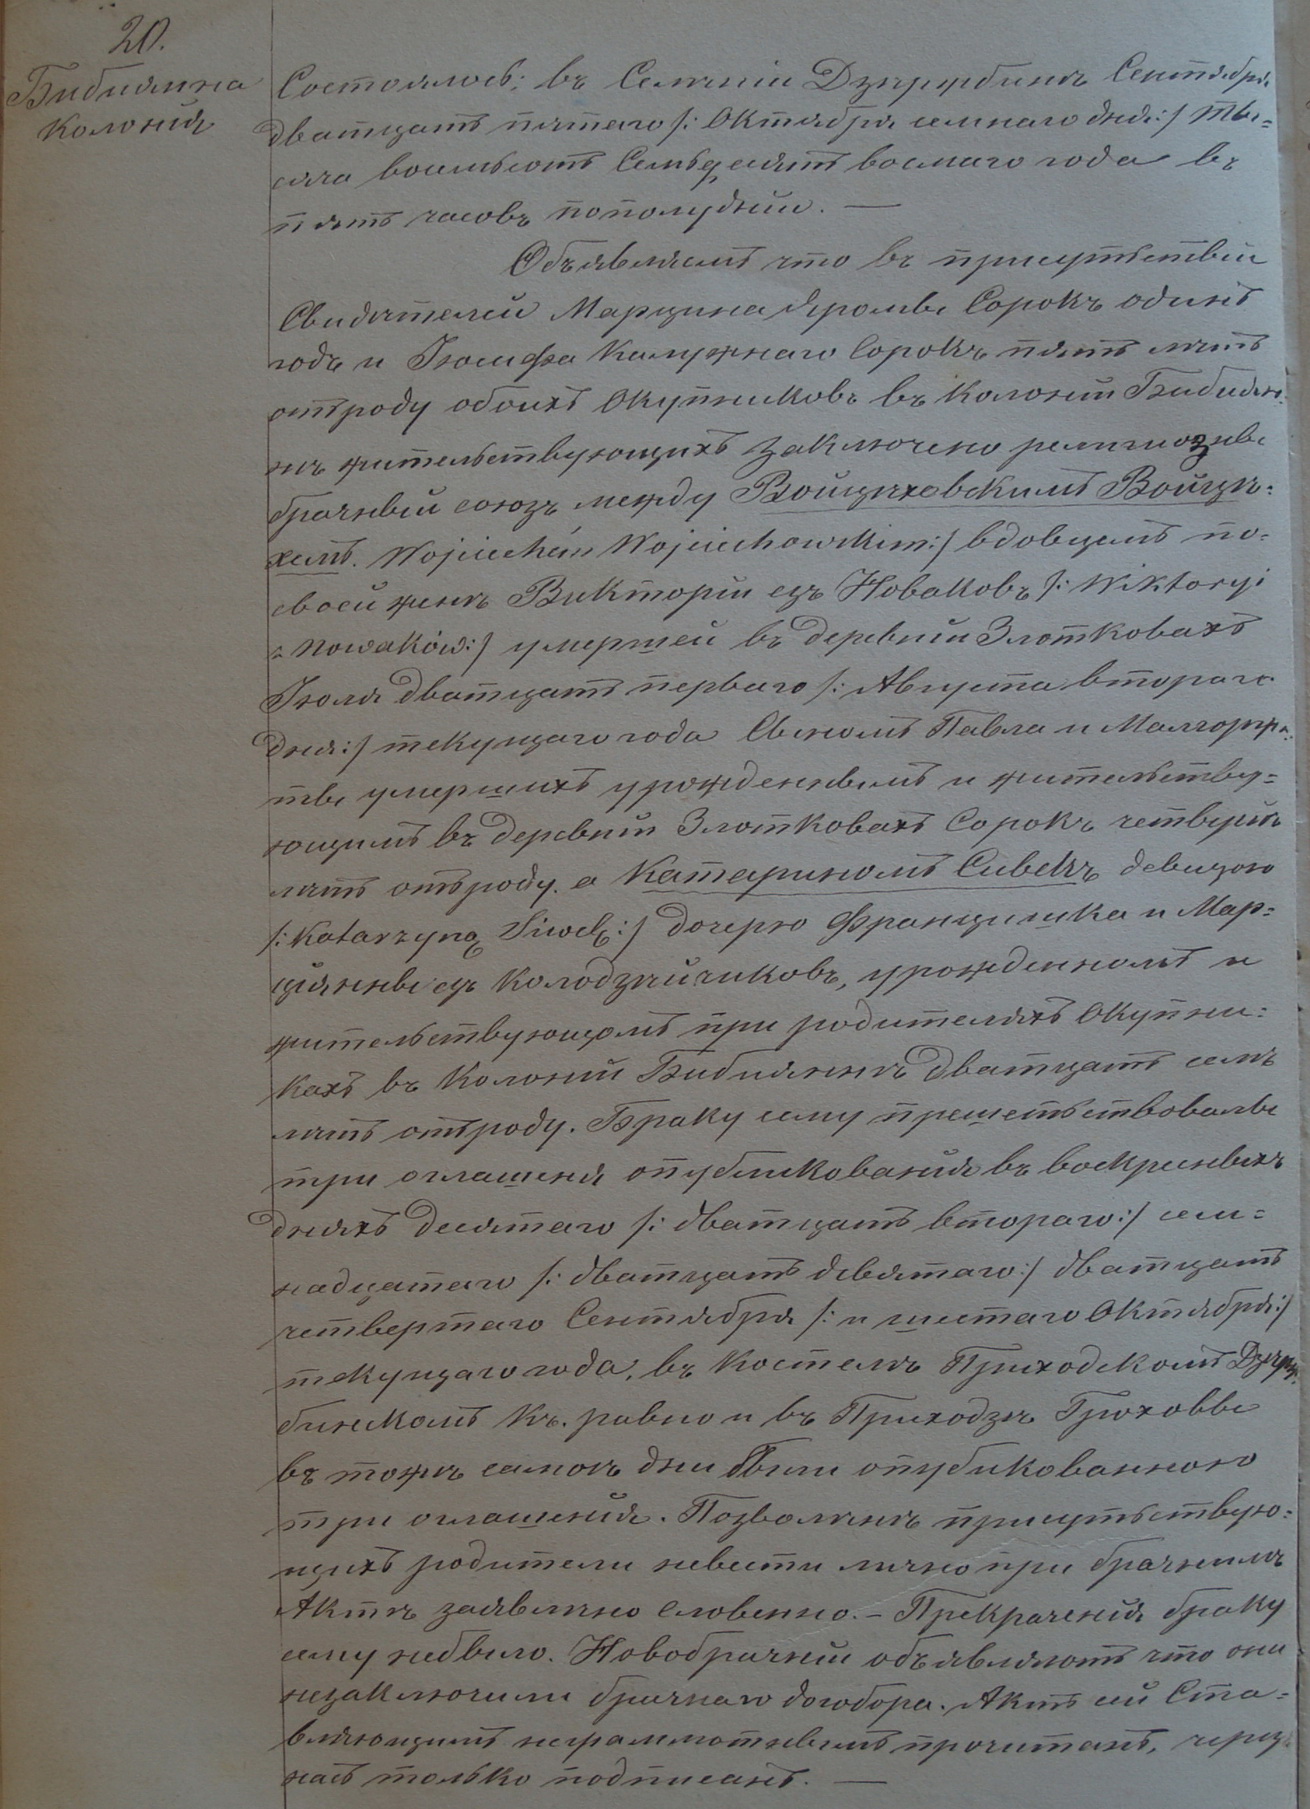 20.
Бибиянна
Колонія
Состоялось: въ Селѣніи Дзѣржбинѣ Сентября
дватцатъ пятаго /: Октября семнаго дня:/ ты=
сяча восемьсотъ Семьдесятъ восмаго года въ
пять часовъ пополудніи. —
Объявляемъ что въ присутьствіи
Свидѣтелей Марцина Яромы Сорокъ одинъ
годъ и Іюсифа Калужнаго Сорокъ пять лѣтъ
отъроду обоихъ Окупниковъ въ Колоніи Бибіян=
нѣ жительствующихъ заключено религиозны
брачный союзъ между Войцѣховскимъ Войцѣ=
хемъ. Wojciechém Wojciechowskim:/ вдовцемъ по=
своей женѣ Викторіи езъ Новаковъ /: Wiktoryi
z Nowaków:/ умершей въ деревніи Злотковахъ
Іюля дватцатъ перваго /: Августа втораго
дня:/ текущаго года Сыномъ Павла и Малгоржа=
ты умершихъ урожденнымъ и жительству=
ющимъ въ деревніи Злотковахъ Сорокъ четверы
лѣтъ отъроду. а Катариномъ Сивекъ девицою
/: Katarzyną Siwek:/ дочерю Францишка и Мар=
цiянны езъ Колодзѣйчиковъ, урожденномъ и
жительствующомъ при родителяхъ Окупни=
кахъ въ Колоніи Бибияннѣ дватцатъ семъ
лѣтъ отъроду. Браку сему прешетьствовалы
три оглашеня опубликованія въ воскриныхъ
дняхъ десятаго /: дватцатъ втораго:/ сем=
надцатаго /: дватцатъ девятаго:/ дватцатъ
четвертаго Сентября /: и шестаго Октября:/
текущаго года, въ Костелѣ Приходскомъ Дзѣрж=
бинскомъ Къ. равно и въ Приходзѣ Грюховы
въ тожѣ самомъ дни были опубикованною
три оглашенія. Позволѣнѣ присутьствую=
щихъ родители невести лично при брачнимъ
Актѣ заявлѣно словенно. — Прекрачения браку
сему небыло. Новобрачніи объявляютъ что они
незаключили брачнаго договора. Актъ сей Ста=
вляющимъ неграммотнымъ прочитанъ, через
насъ только подписанъ. —